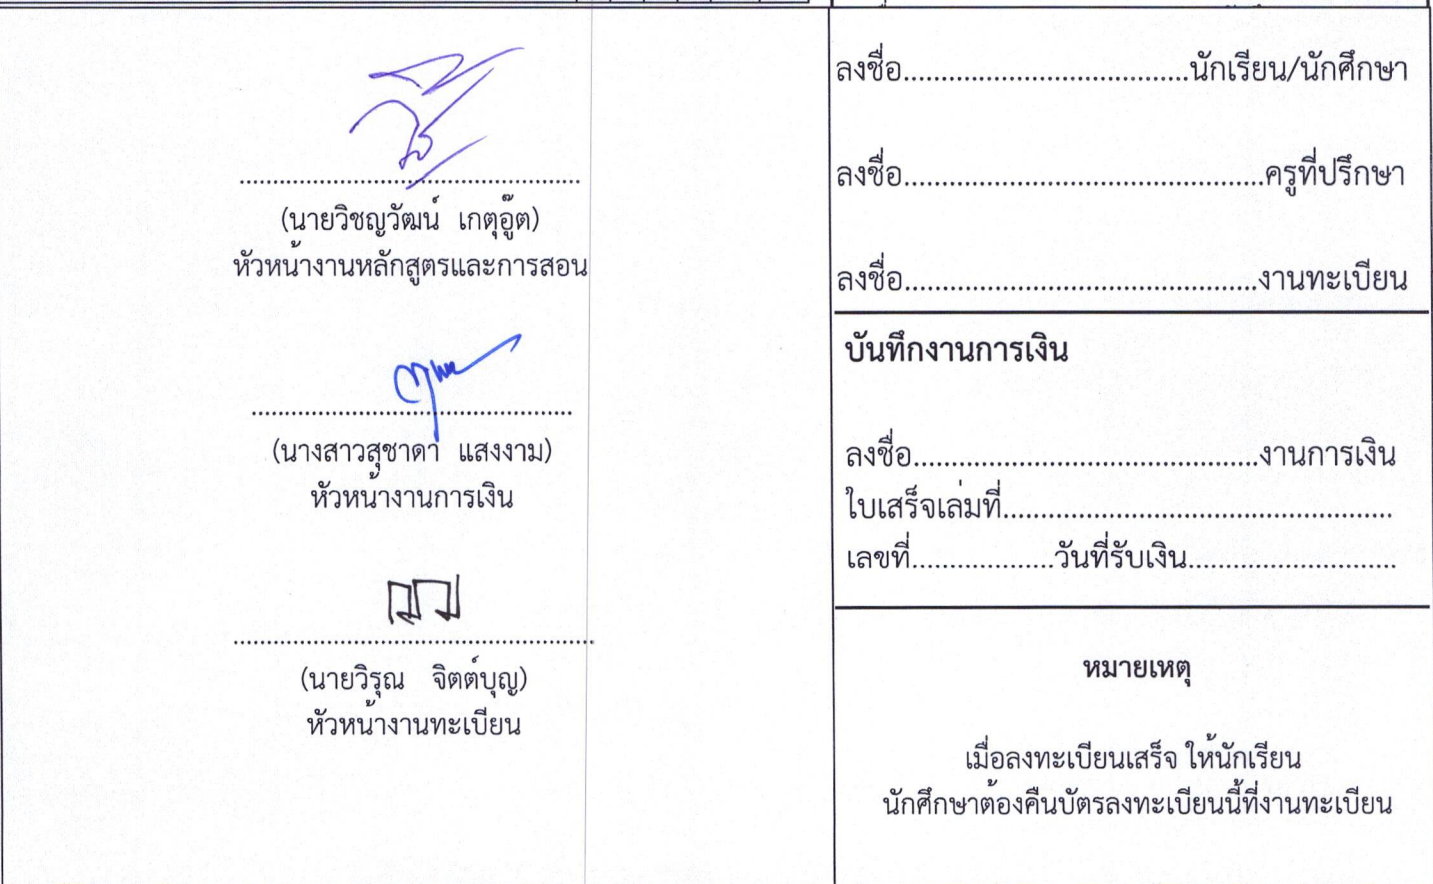 (นายวิชญวัฒน์ เกตุอู๊ต)
หัวหน้างานหลักสูตรและการสอน
(นางสาวสุชาดา แสงงาม)
หัวหน้างานการเงิน
(นายวิรุณ จิตต์บุญ)
หัวหน้างานทะเบียน
ลงชื่อ......................................นักเรียน/นักศึกษา
ลงชื่อ................................................ครูที่ปรึกษา
ลงชื่อ...............................................งานทะเบียน
บันทึกงานการเงิน
ลงชื่อ..............................................งานการเงิน
ใบเสร็จเล่มที่....................................................
เลขที่...................วันที่รับเงิน............................
หมายเหตุ
เมื่อลงทะเบียนเสร็จ ให้นักเรียน
นักศึกษาต้องคืนบัตรลงทะเบียนนี้ที่งานทะเบียน